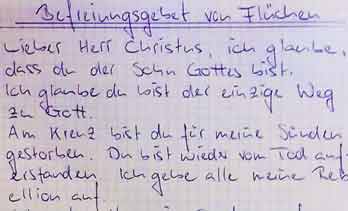 Befreiungsgebet von Flüchen
Lieber Herr Christus, ich glaube,
dass du der Sohn Gottes bist.
Ich glaube du bist der einzige Weg
zu Gott.
Am Kreuz bist du für meine Sünden
gestorben. Du bist wieder vom Tod auf-
erstanden. Ich gebe alle meine Reb
ellion auf.